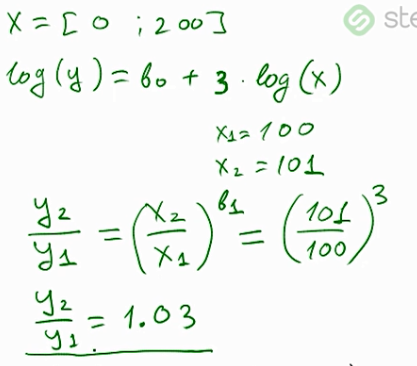 x = [ 0 ; 200]
ste
log(y) = b₀ + 3 · log(x)
x₁ = 100
x₂ = 101
y₂/y₁ = (x₂/x₁)^b₁ = (101/100)^3
y₂/y₁ = 1.03